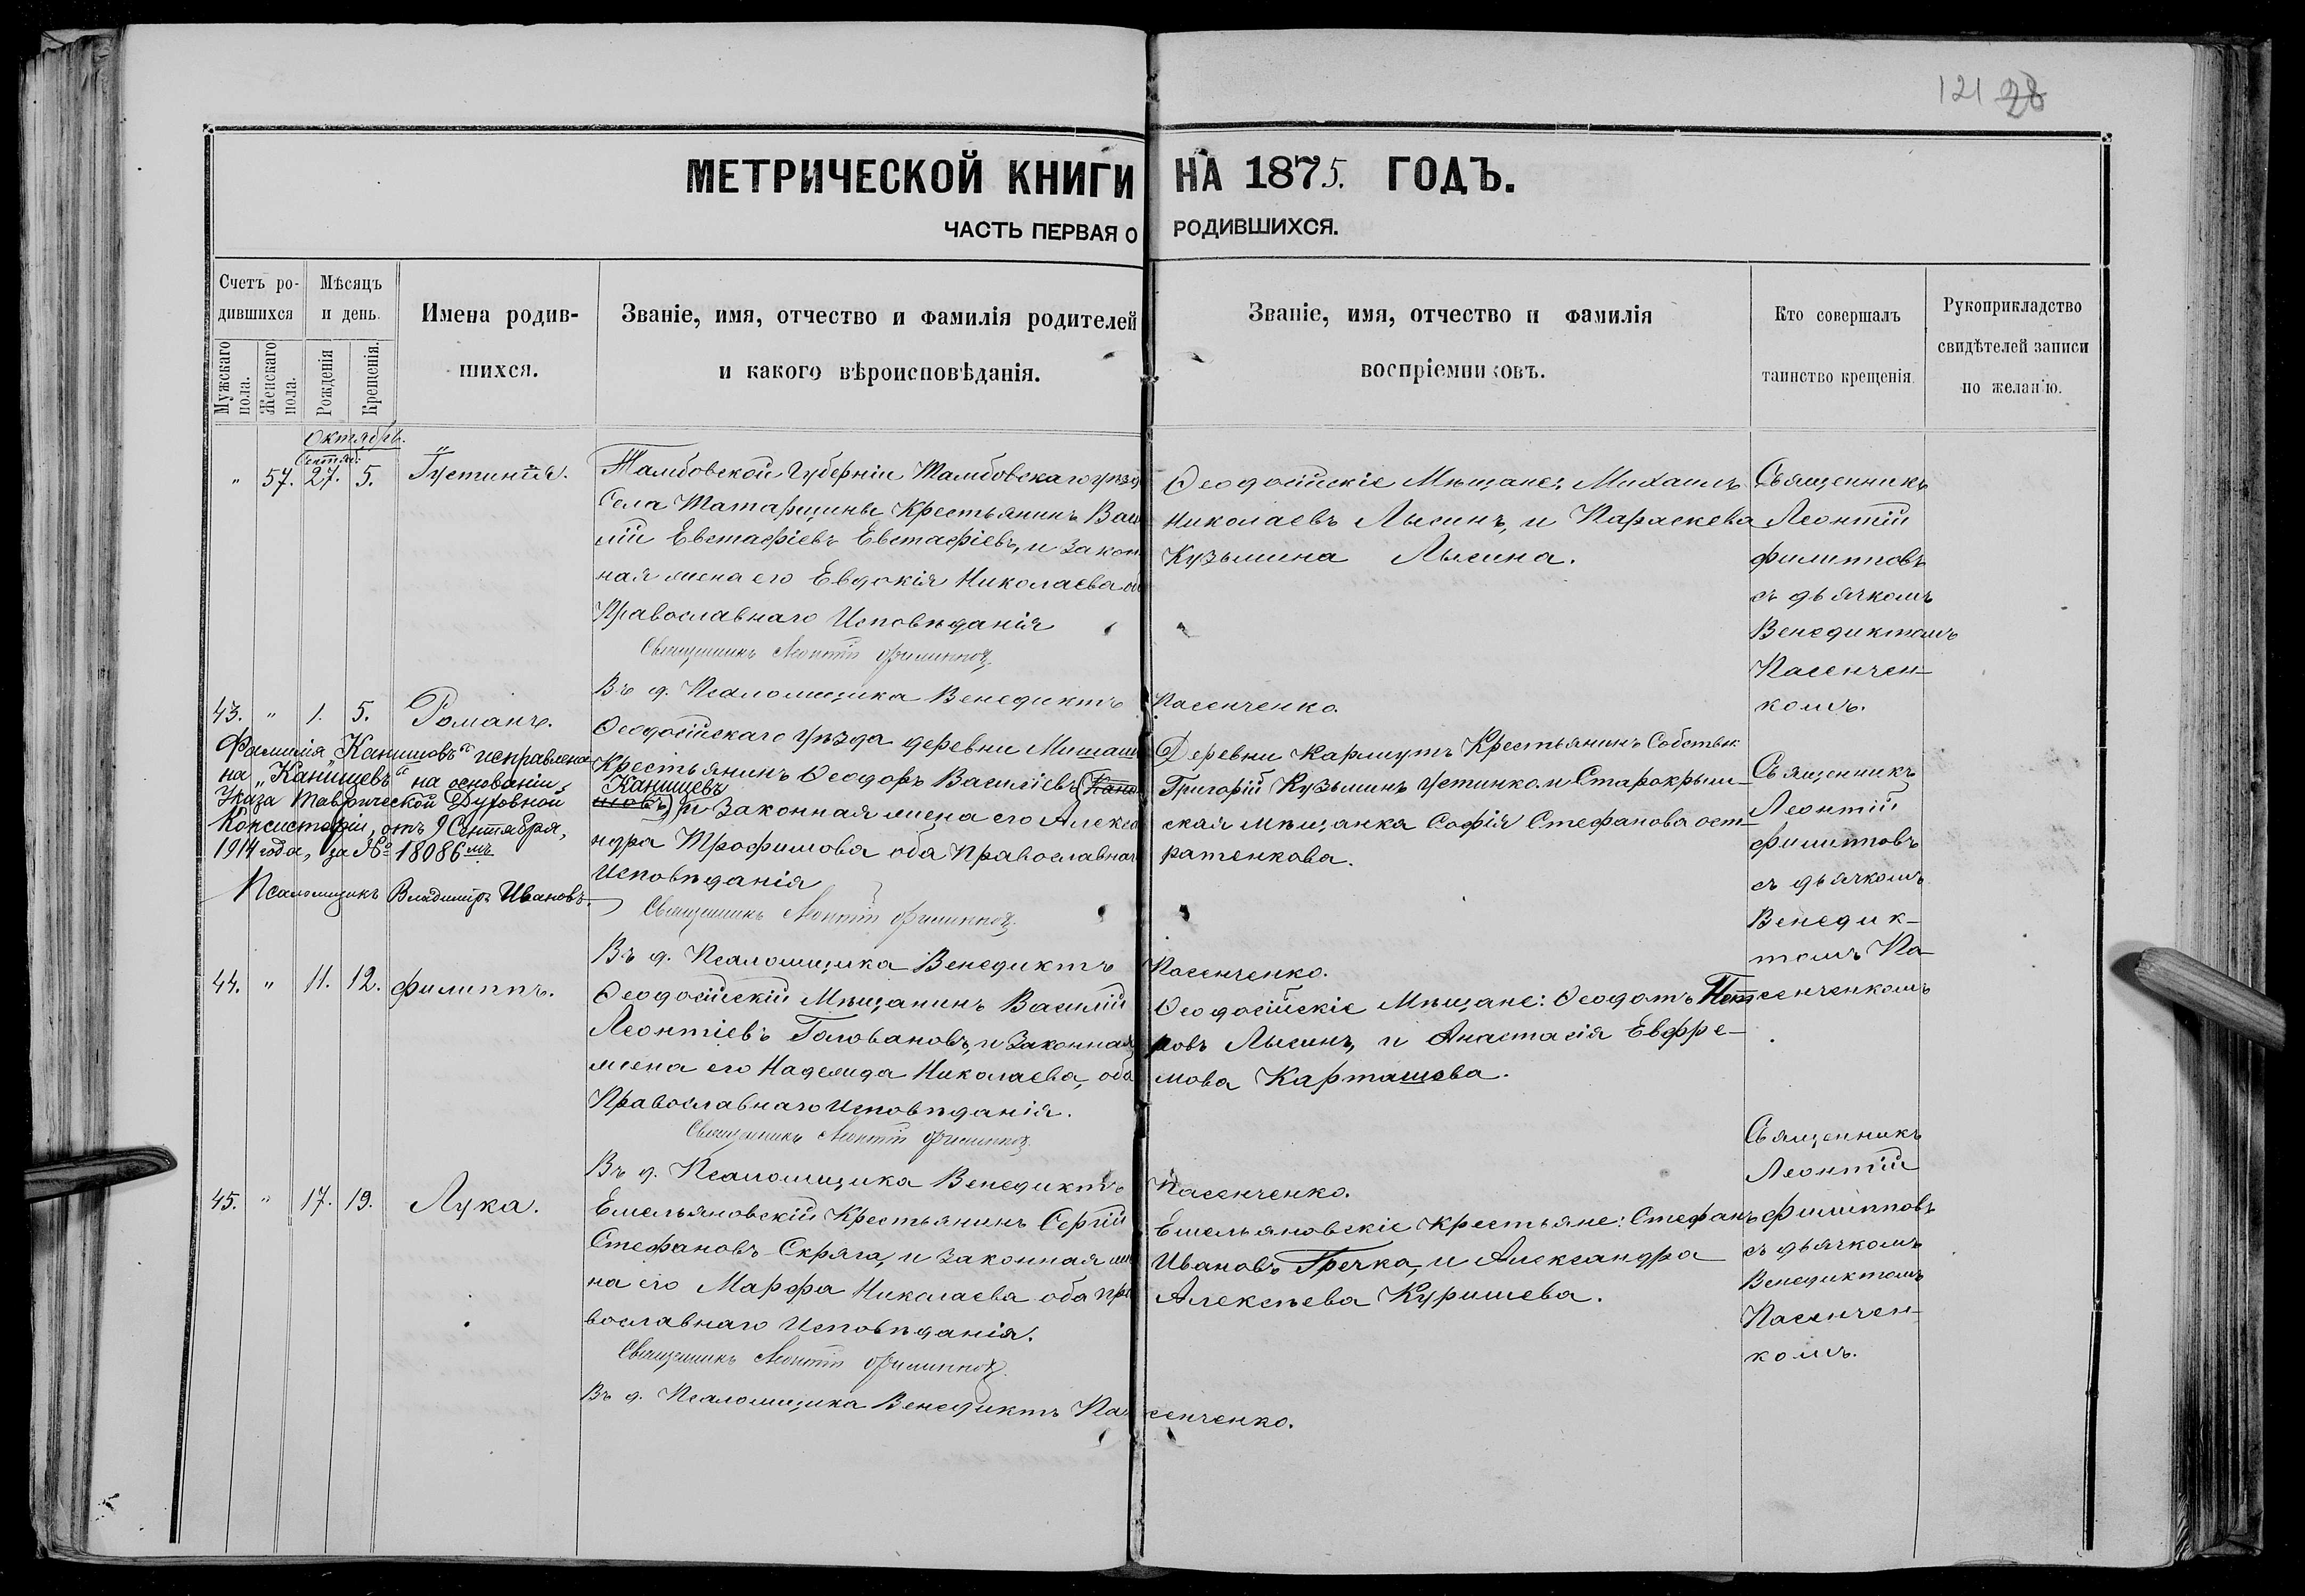 121 28
МЕТРИЧЕСКОЙ КНИГИ НА 1875. ГОДЪ.
ЧАСТЬ ПЕРВАЯ О РОДИВШИХСЯ.
Счетъ ро-
дившихся
Мужскаго пола.
Женскаго пола.
Мѣсяцъ
и день.
Рожденія
Крещенія.
Имена родив-
шихся.
Званіе, имя, отчество и фамилія родителей
и какого вѣроисповѣданія.
Званіе, имя, отчество и фамилія
воспріемниковъ.
Кто совершалъ
таинство крещенія
Рукоприкладство
свидѣтелей записи
по желанію.
Октябрь.
Сентяб:
" 57. 27. 5. Іустинія.
Тамбовской Губерніи Тамбовскаго уѣзд
Села Татарщины Крестьянинъ Васи
лій Евстафіевъ Евстафіевъ, и закон
ная жена его Евдокія Николаева об
Православнаго Исповѣданія
Священникъ Леонтій Филипповъ
Въ д. Псаломщика Венедиктъ Пасенченко.
Ѳеодосійскіе Мѣщане: Михаилъ
Николаевъ Лысинъ, и Параскева
Кузьмина Лысина.
Священникъ
Леонтій
Филипповъ
съ дьячкомъ
Венедиктомъ
Пасенчен-
комъ.
43. " 1. 5. Романъ.
Фамилія „Канишовъ" исправлена
на „Канищевъ" на основаніи
Указа Таврической Духовной
Консисторіи, отъ 9 Сентября,
1914 года, за № 18086мъ
Псаломщикъ Владимиръ Ивановъ.
Ѳеодосійскаго уѣзда деревни
Крестьянинъ Ѳеодоръ Василіевъ
Канищевъ
и Законная жена его Алекса
ндра Трофимова оба Православнаг
Исповѣданія
Священникъ Леонтій Филипповъ
Въ д. Псаломщика Венедиктъ Пасенченко.
Деревни Кармутъ Крестьянинъ Собствен
Григорій Кузьминъ Устинко и Старокрым-
ская мѣщанка Софія Стефанова ост-
ратенкова.
Священникъ
Леонтій
Филипповъ
съ дьячкомъ
Венедик-
томъ Па-
сенченкомъ
44. " 11. 12. Филиппъ.
Ѳеодосійскій Мѣщанинъ Василій
Леонтіевъ Головановъ, и Законная
жена его Надежда Николаева, оба
Православнаго Исповѣданія.
Священникъ Леонтій Филипповъ
Въ д. Псаломщика Венедиктъ Пасенченко.
Ѳеодосійскіе Мѣщане: Ѳеодотъ Пет
ровъ Лысинъ, и Анастасія Евфре-
мова Карташева.
Священникъ
Леонтій
Филипповъ
съ дьячкомъ
Венедиктомъ
Пасенчен-
комъ.
45. " 17. 19. Лука.
Емельяновскій Крестьянинъ Сергій
Стефановъ Скряга, и Законная же
на его Марфа Николаева оба пра
вославнаго Исповѣданія.
Священникъ Леонтій Филипповъ
Въ д. Псаломщика Венедиктъ Пасенченко.
Емельяновскіе Крестьяне: Стефанъ
Ивановъ Гречка, и Александра
Алексѣева Куришева.